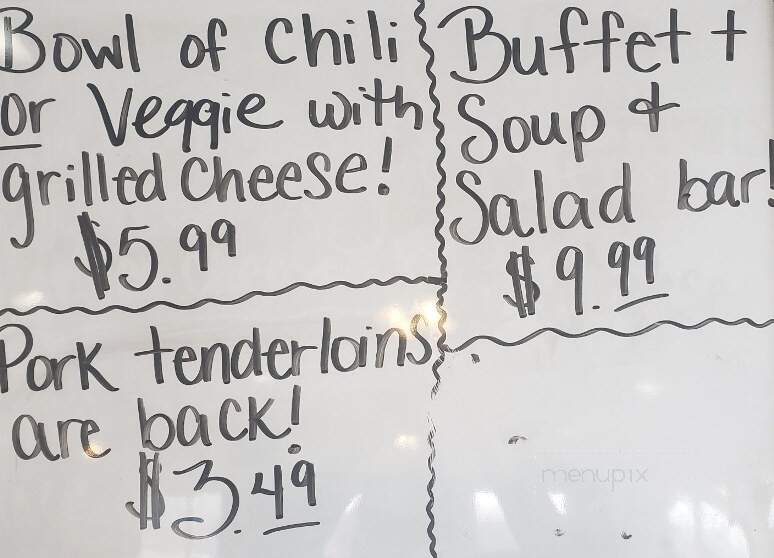 Bowl of Chili
or Veggie with
grilled cheese!
$5.99
Buffet +
Soup &
Salad bar!
$9.99
Pork tenderloins
are back!
$3.49
menupix